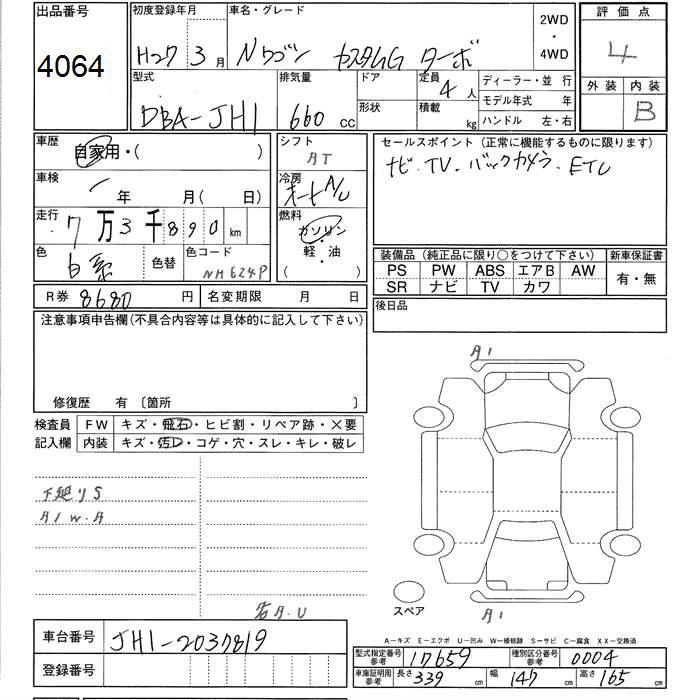 出品番号
4064
初度登録年月
H27 3月
車名・グレード
Nワゴン カスタムG ターボ
2WD
・
4WD
評価点
4
外装 内装
B
型式
DBA-JH1
排気量
660 cc
ドア
形状
定員
4人
積載
kg
ディーラー・並行
モデル年式 年
ハンドル 左・右
車歴
自家用・( )
車検
年 月( 日)
走行
7万3千890km
色
白系
色替
色コード
NH624P
シフト
AT
冷房
オートA/C
燃料
ガソリン
・
軽・油
( )
セールスポイント（正常に機能するものに限ります）
ナビ・TV・バックカメラ・ETC
装備品（純正品に限り○をつけて下さい）
PS PW ABS エアB AW
SR ナビ TV カワ
新車保証書
有・無
R券 8680円
名変期限 月 日
後日品
注意事項申告欄(不具合内容等は具体的に記入して下さい)
修復歴 有〔箇所 〕
検査員
記入欄
FW キズ・飛石・ヒビ割・リペア跡・×要
内装 キズ・汚レ・コゲ・穴・スレ・キレ・破レ
下廻りS
A1
スペア
A1
車台番号
JH1-2037819
登録番号
A－キズ E－エクボ U－凹み W－補修跡 S－サビ C－腐食 XX－交換済
型式指定番号
参考
17659
種別区分番号
参考
0004
車庫証明用
参考
長さ 339cm
幅 147cm
高さ 165cm